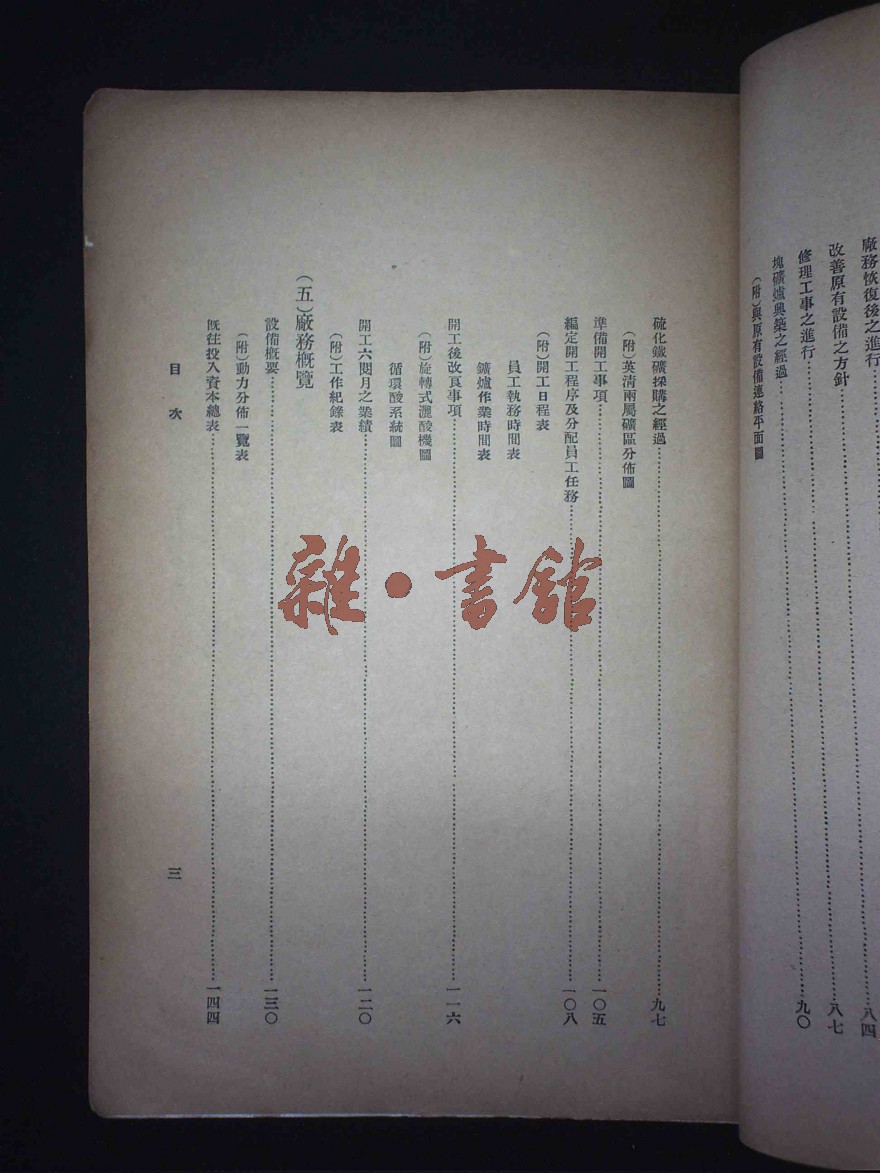 廠務恢復後之進行……八四
改善原有設備之方針……八七
修理工事之進行……九〇
塊礦爐興築之經過……
(附)與原有設備連絡平面圖
硫化鐵礦採購之經過……九七
(附)英清兩屬礦區分佈圖
準備開工事項……一〇五
編定開工程序及分配員工任務……一〇八
(附)開工日程表
員工執務時間表
鑛爐作業時間表
開工後改良事項……一一六
(附)旋轉式灑酸機圖
循環酸系統圖
開工六閱月之業績……一二〇
(附)工作紀錄表
(五)廠務概覽
設備概要……一三〇
(附)動力分佈一覽表
既往投入資本總表……一四四
目次
三
雜·書館